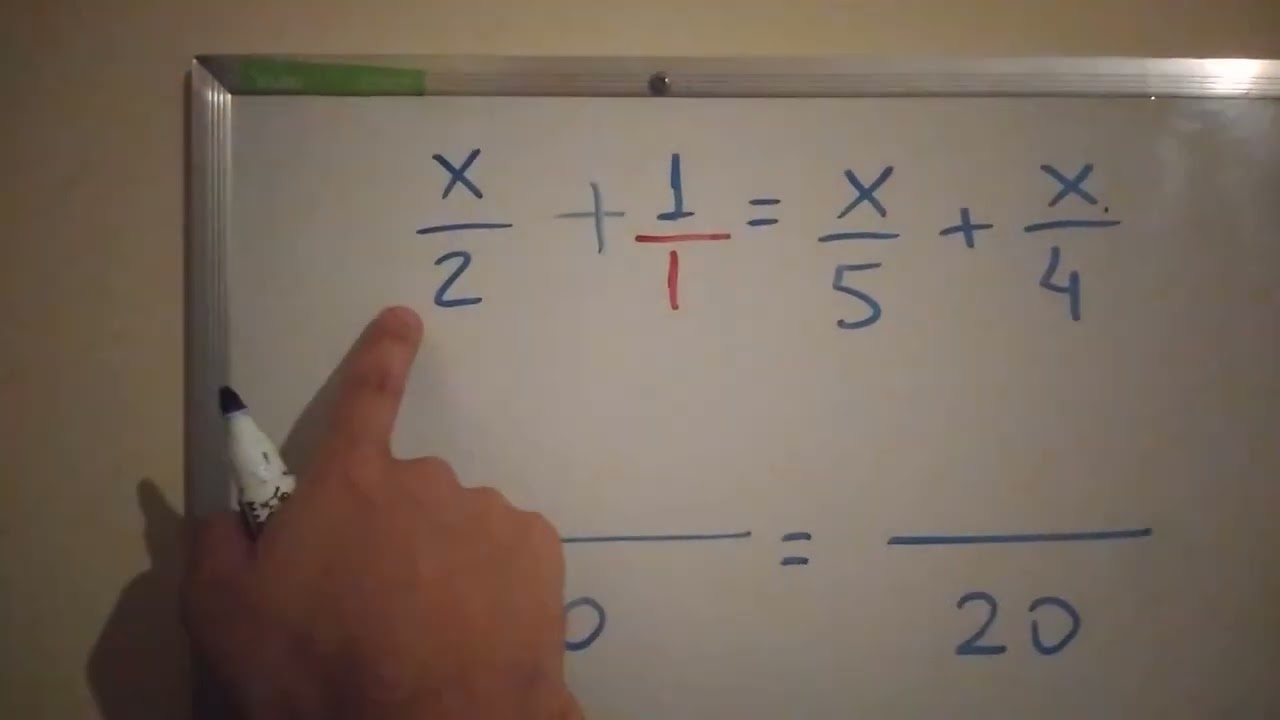 x/2 + 1/1 = x/5 + x/4
0 = 20